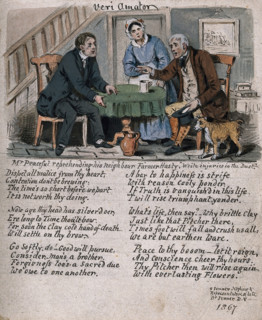 Veri Amator
Mr Peaceful reprehending his neighbour Farmer Hasty, while injuries in the Dust
Dispel all malice from thy heart;
Contention don't be
The time's so short before we part
It is not worth thy doing.
Now age thy head has silver'd oer,
Ere long to Time thou'lt bow.
For soon the Clay cold hand of death
Will settle on thy brow.
Go Softly, do—Good will pursue.
Consider, man's a brother,
Forgiveness too's a Sacred due
We owe to one another.
A bar to happiness is strife
We'll reason cooly ponder
If Truth is vanquish'd in this life
T'will rise triumphant yonder.
What's life, then say?.. Why brittle Clay
Just like that Pitcher there
Time's foot will fall and crush us all,
We are but earthen Ware.
Peace to thy bosom — let it reign,
And Conscience cheer thy hours,
Thy Pitcher then will rise again
With everlasting Flowers.
1867